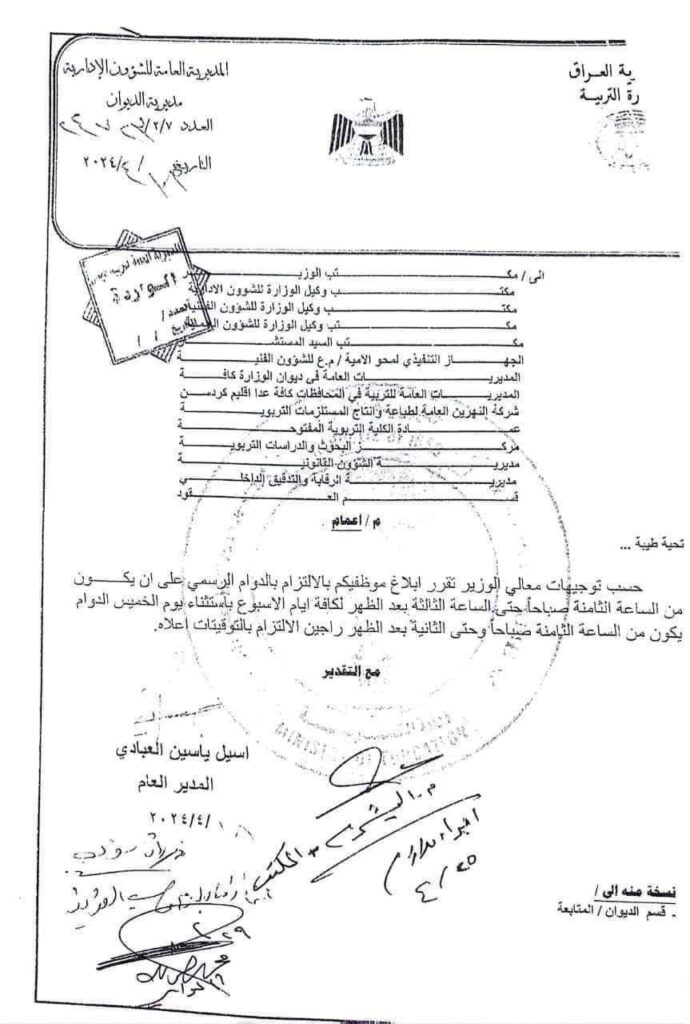 ية العراق
رة التربية
المديرية العامة للشؤون الإدارية
مديرية الديوان
العدد
التاريخ / /٢٠٢٤
الى / مكتب الوزير
مكتب وكيل الوزارة للشؤون الادارية
مكتب وكيل الوزارة للشؤون الفنية
مكتب وكيل الوزارة للشؤون
مكتب السيد المستشار
الجهاز التنفيذي لمحو الامية / م.ع للشؤون الفنية
المديريات العامة في ديوان الوزارة كافة
المديريات العامة للتربية في المحافظات كافة عدا اقليم كردستان
شركة النهرين العامة لطباعة وانتاج المستلزمات التربوية
عمادة الكلية التربوية المفتوحة
مركز البحوث والدراسات التربوية
مديرية الشؤون القانونية
مديرية الرقابة والتدقيق الداخلي
قسم العقود
م / اعمام
تحية طيبة ...
حسب توجيهات معالي الوزير تقرر ابلاغ موظفيكم بالالتزام بالدوام الرسمي على ان يكون
من الساعة الثامنة صباحاً حتى الساعة الثالثة بعد الظهر لكافة ايام الاسبوع بأستثناء يوم الخميس الدوام
يكون من الساعة الثامنة صباحاً وحتى الثانية بعد الظهر راجين الالتزام بالتوقيتات اعلاه.
مع التقدير
اسيل ياسين العبادي
المدير العام
٢٠٢٤/٤/
٤/٢٥
نسخة منه الى /
- قسم الديوان / المتابعة